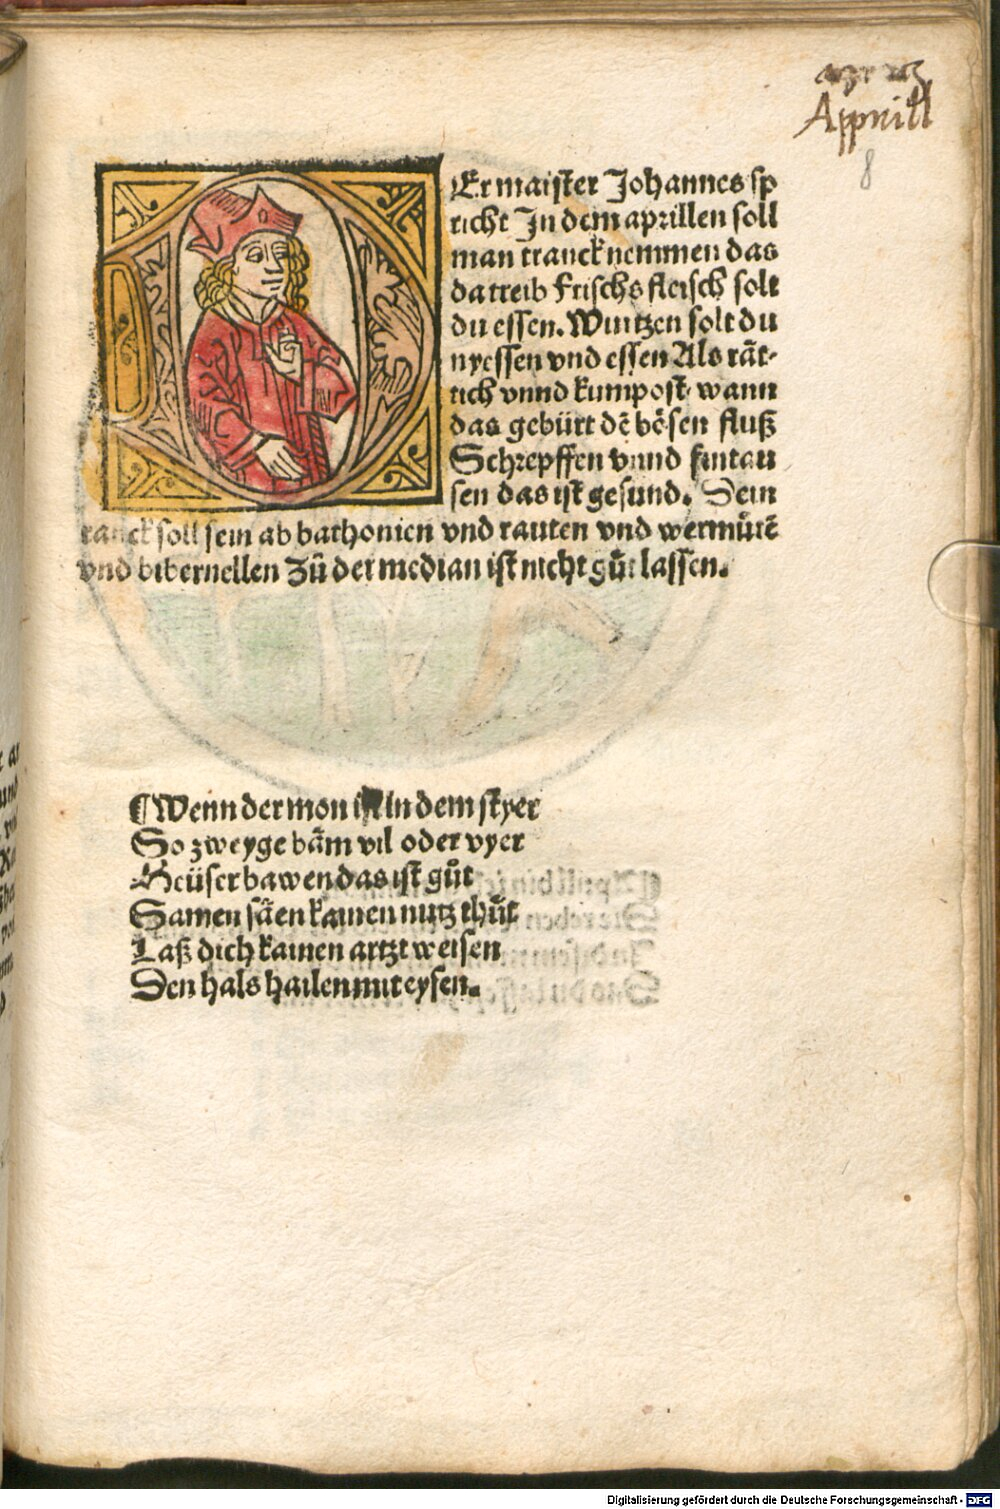 Apprill
8
DEr maister Johannes sp
richt In dem aprillen soll
man tranck nemmen das
da treib Frischs fleisch solt
du essen. Wurtzen solt du
nyessen vnd essen Als rät-
tich vnnd kumpost wann
das gebürt dē bösen fluß
Schrepffen vnnd
sen das ist gesund. Dein
tranck soll sein ab bathonien vnd rauten vnd wermůtē
vnd bibernellen Zů der median ist nicht gůt lassen.
¶ Wenn der mon ist in dem styer
So zweyge bäm vil oder vyer
Heüser bawen das ist gůt
Samen säen kainen nutz thůt
Laß dich kainen artzt weisen
Den hals hailen mit eysen.
Digitalisierung gefördert durch die Deutsche Forschungsgemeinschaft - DFG